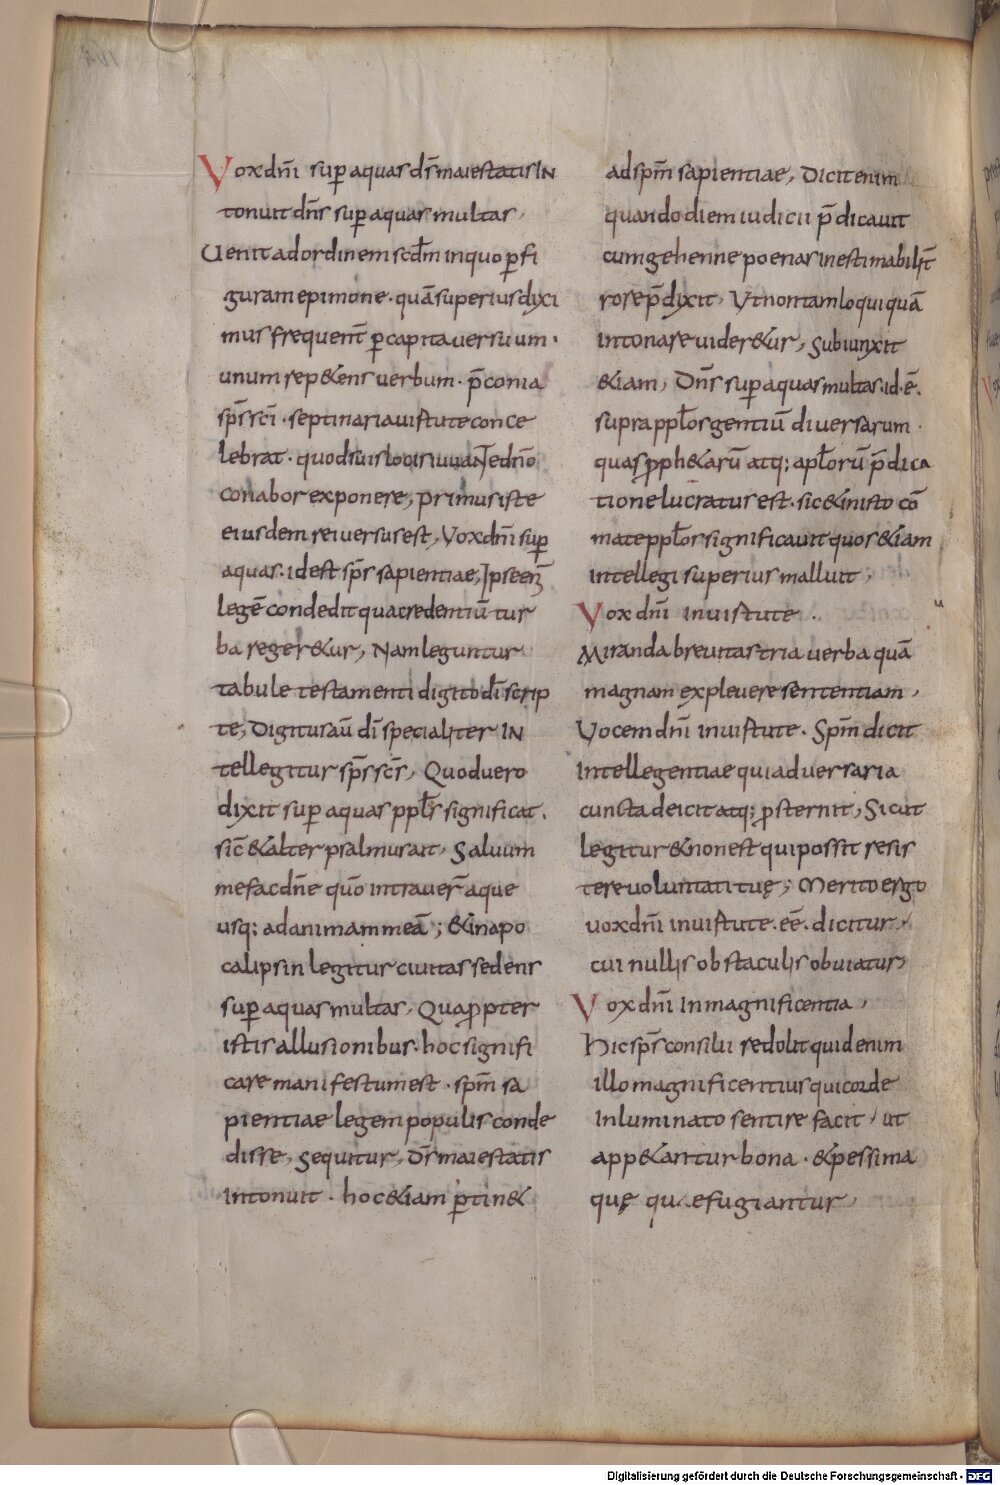 Vox dn̄i sup aquas ds̄ maiestatis IN
tonuit dn̄s sup aquas multas,
Uenit ad ordinem scd̄m in quo p̱ fi
guram epimone · quā superius dixi
mus frequent̄ p̱ capita uersuum ·
unum rep&ens uerbum · p̄conia
sp̄s sc̄i · septinaria uirtute conce
lebrat · quod suis locis iuuaNTe dn̄o
conabor exponere, primus iste
eiusdem rei uersus est, Vox dn̄i sup
aquas · id est sp̄s sapientiae, Ipse eni͂
legē condedit qua credentiū tur
ba reger&ur, Nam leguntur
tabule testamenti digito dī scrip
te, Digitus aū dī specialiter IN
tellegitur sp̄s sc̄s, Quod uero
dixit sup aquas ppl̄s significat ·
sic̄ & alter psalmus ait, Saluum
me fac dn̄e quō intrauer̄ aque
usq; ad animam meā; & in apo
calipsin legitur ciuitas sedens
sup aquas multas, Quap̱pter
istis allusionibus · hoc signifi
care manifestum est · sp̄m sa
pientiae legem populis conde
disse, sequitur, Ds̄ maiestatis
intonuit · hoc &iam p̱tin&
ad sp̄m sapientiae, Dicit enim
quando diem iudicii p̄dicauit
cum gehenne poenas inestimabilit̄
rose p̄dixit, Vt non tam loqui quā
intonare uider&ur, subiunxit
&iam, Dn̄s sup aquas multas · id · ē ·
supra ppl̄os gentiū diuersarum ·
quas p̱ph&arū atq; apl̄orū p̄dica
tione lucratus est · sic & in isto cō
mate ppl̄os significauit quos &iam
intellegi superius malluit,
Vox dn̄i in uirtute ·
Miranda breuitas tria uerba quā
magnam expleuere sententiam,
Vocem dn̄i in uirtute · Sp̄m dicit
Intellegentiae qui aduersaria
cuncta deicit atq; p̱sternit, Sicut
legitur & non est qui possit resis
tere uoluntati tuę; Merito ergo
uox dn̄i in uirtute · eē · dicitur,
cui nullis obstaculis obuiatur,
Vox dn̄i In magnificentia,
Hic sp̄s consilii redolit quid enim
illo magnificentius qui corde
Inluminato sentire facit, ut
app&antur bona · & pessima
quę quaefugiantur,
Digitalisierung gefördert durch die Deutsche Forschungsgemeinschaft - DFG